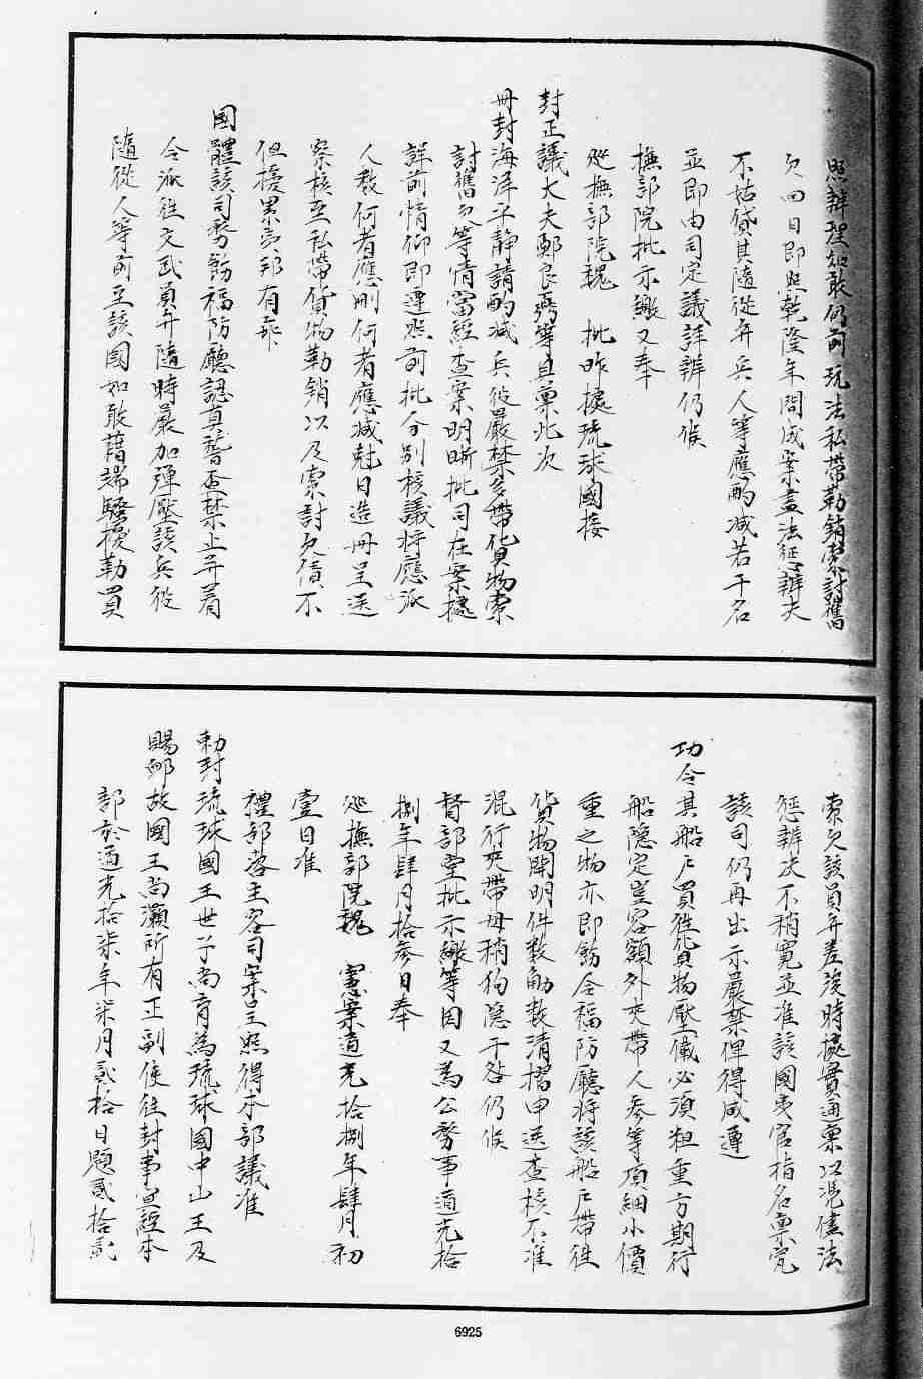 照辦理如敢仍前玩法私帶勒銷索討舊
欠四日即照乾隆年間成案盡法懲辦夫
不姑貸其隨從弁兵人等應酌減若干名
並即由司定議詳辦仍候
撫部院批示繳又奉
廵撫部院魏　批昨據琉球國接
封正議大夫鄭良弼等具稟此次
冊封海洋平靜請酌減兵役嚴禁多帶貨物索
討舊欠等情當經查案明晰批司在案據
詳前情仰即遵照前批分別核議將應派
人數何者應刪何者應減尅日造冊呈送
察核至私帶貨物勒銷以及索討欠債不
但擾累夷邦有乖
國體該司務飭福防廳認真稽查禁止并着
令派往文武員弁隨時嚴加彈壓該兵役
隨從人等前至該國如敢藉端騷擾勒買
索欠該員弁差竣時據實通稟以凭儘法
懲辦决不稍寬並准該國夷官指名稟究
該司仍再出示嚴禁俾得咸遵
功令其船户買牲貨物壓儎必須粗重方期行
船隱定豈容額外夾帶人參等項細小價
重之物亦即飭令福防廳將該船户帶往
貨物開明件數觔數清摺申送查核不准
混行夾帶毋稍狥隱干咎仍候
督部堂批示繳等因又為公務事道光拾
捌年肆月拾參日奉
廵撫部院魏　憲案道光拾捌年肆月初
壹日准
禮部咨主客司案呈照得本部議准
勅封琉球國王世子尚育為琉球國中山王及
賜䘏故國王尚灝所有正副使往封事宜經本
部於道光拾柒年柒月貳拾日題貳拾貳
6925